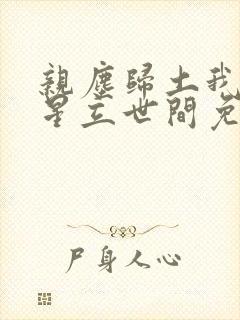 親塵歸土我
星立世間免
尸身人心